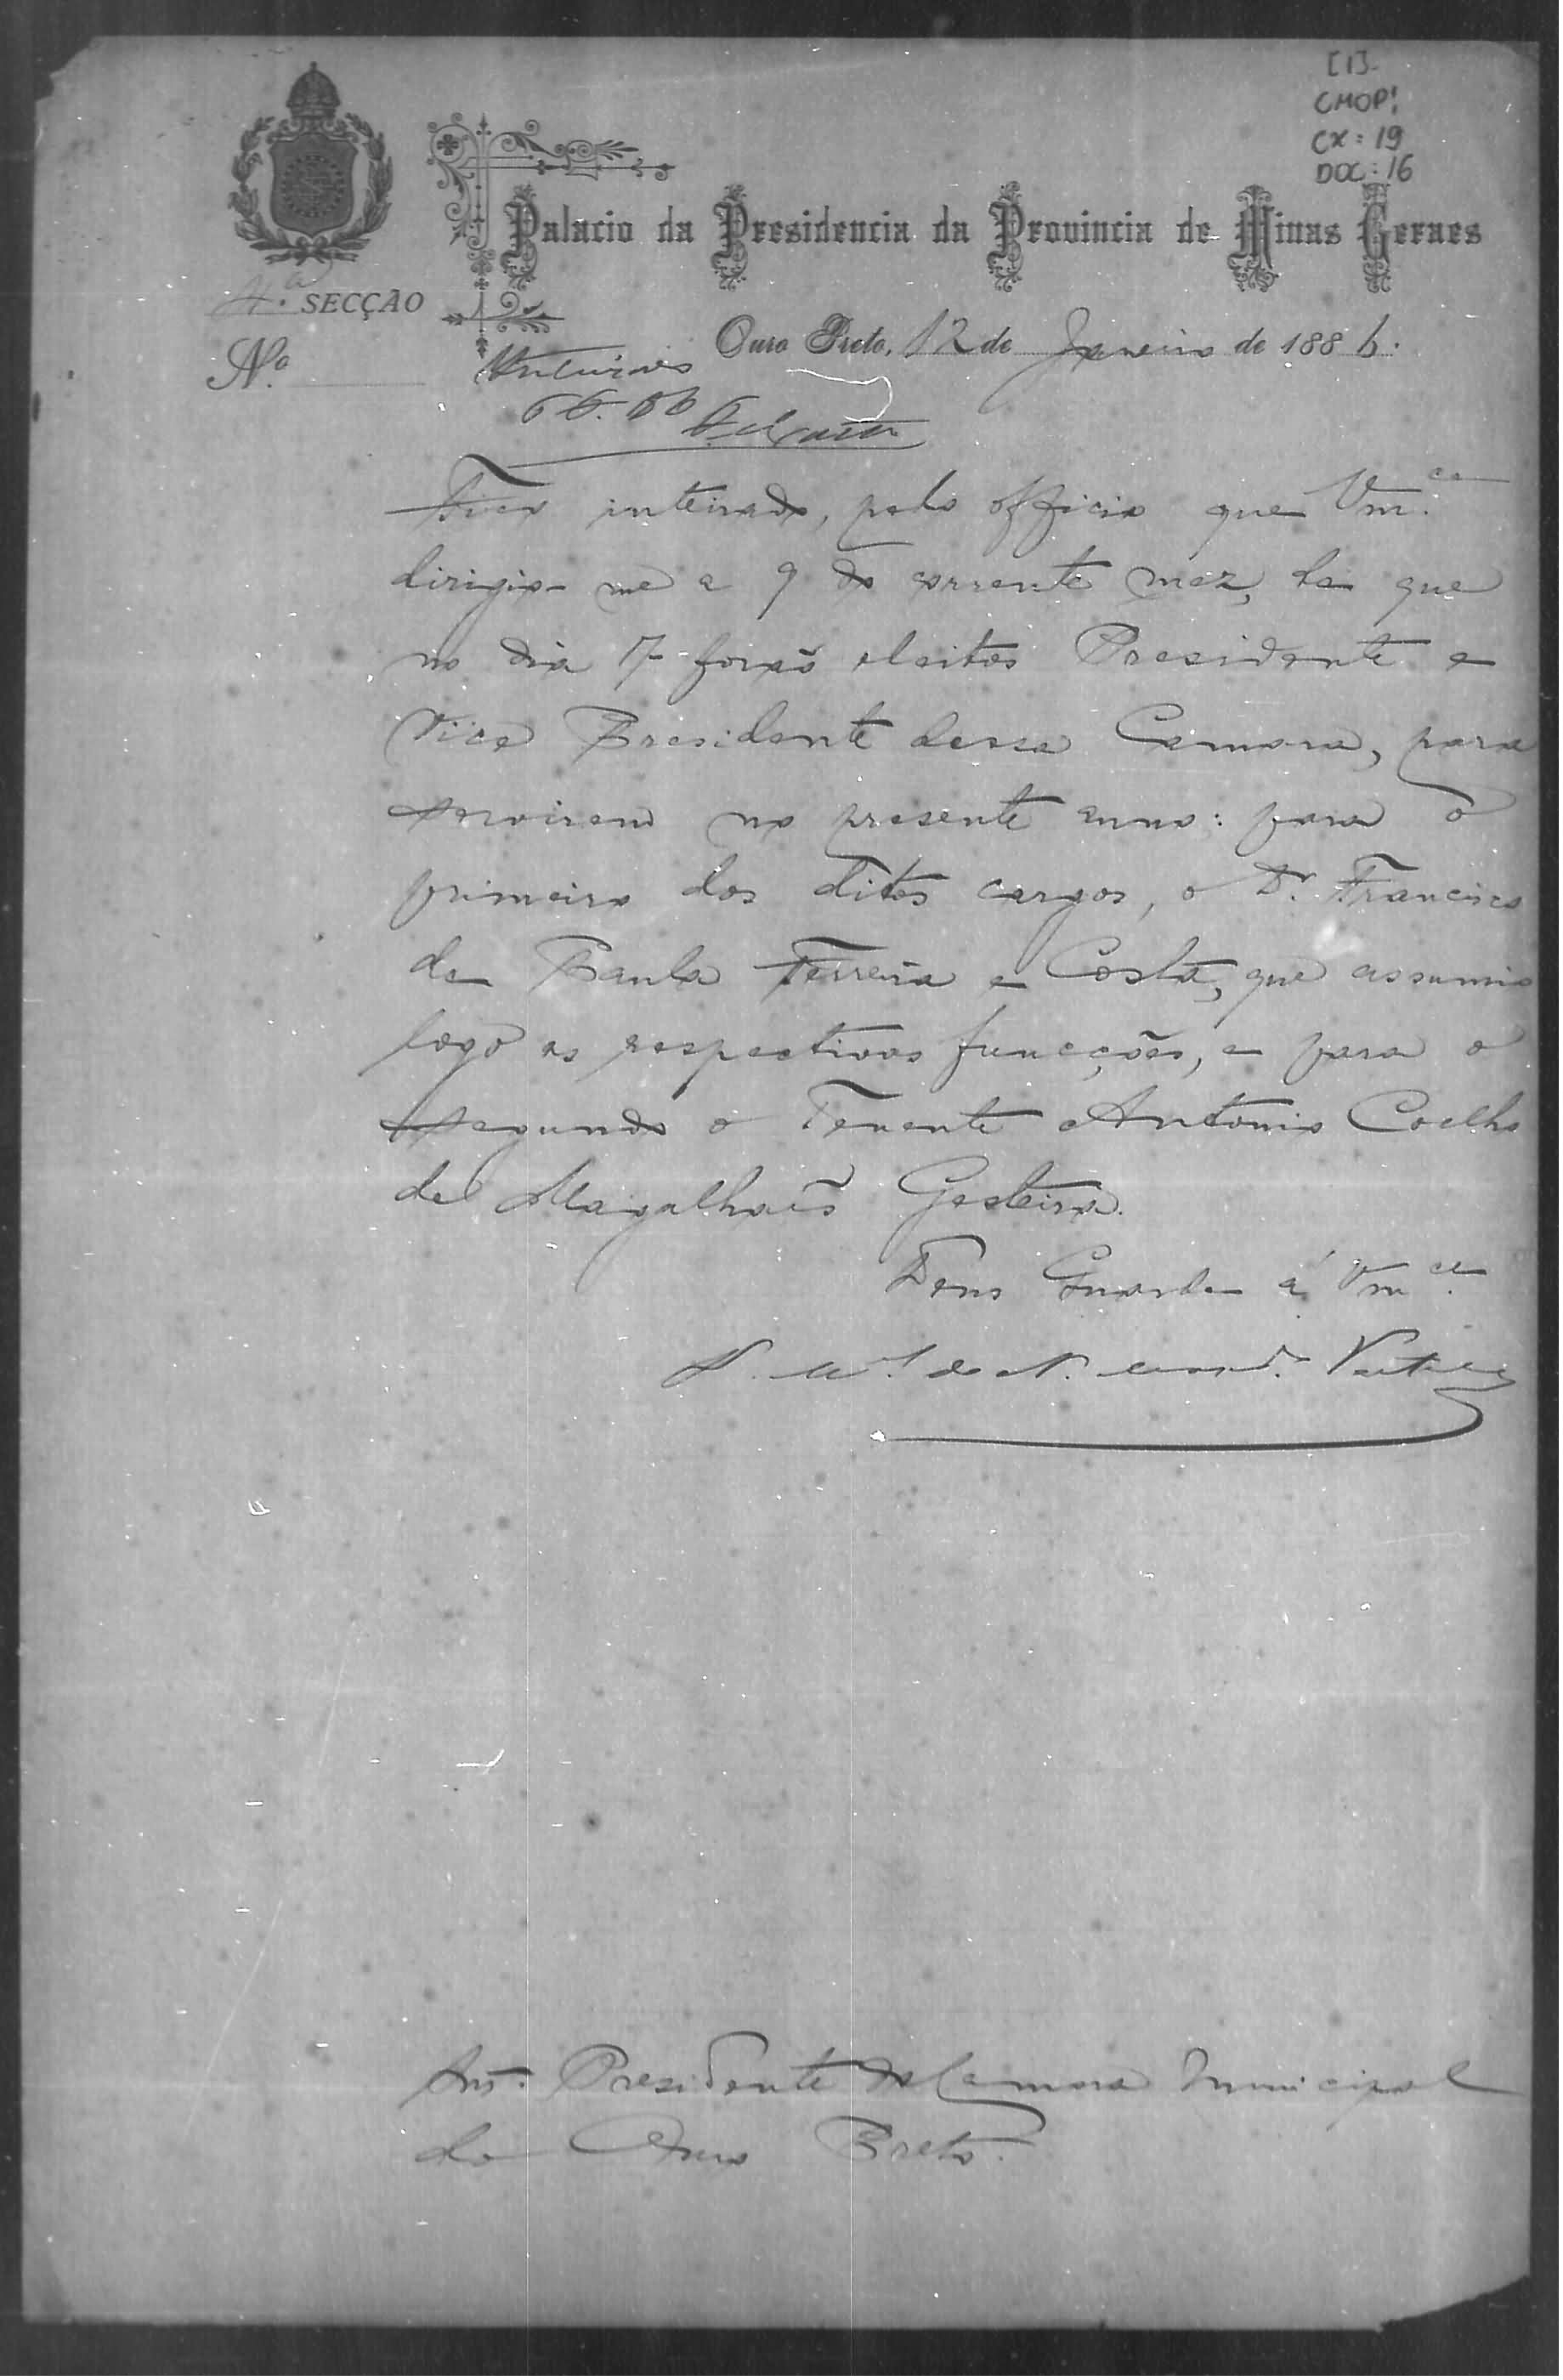 [1]
CMOP!
CX: 19
DOC: 16
Palacio da Presidencia da Provincia de Minas Geraes
4.ª SECÇÃO
Ouro Preto, 12 de Janeiro de 1886.
N.º
Fico inteirado, pelo officio que Vm.ce
dirigio-me a 9 do corrente mez, de que
no dia 7 forão eleitos Presidente e
Vice Presidente dessa Camara, para
servirem no presente anno: para o
primeiro dos ditos cargos, o Dr. Francisco
de Paula Ferreira e Costa, que assumio
logo as respectivas funcções, e para o
segundo o Tenente Antonio Coelho
de Magalhães Gesteira.
Deus Guarde á Vm.ce
Presidente da Camara Municipal
de Ouro Preto.